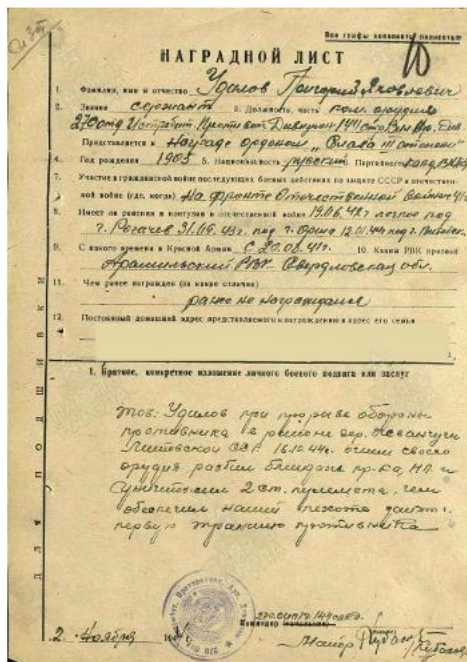 Все графы заполнять полностью
10
НАГРАДНОЙ ЛИСТ
1. Фамилия, имя и отчество Удилов Григорий Яковлевич
2. Звание сержант 3. Должность, часть ком. орудия
270 отд Истребит. Противот. Дивизион 144
Представляется к Награде орденом „Слава III степени“
4. Год рождения 1905 5. Национальность русский Партийность канд. ВКП(б)
7. Участие в гражданской войне последующих боевых действиях по защите СССР и отечествен-
ной войне (где, когда) На фронте Отечественной войны с 41 г.
8. Имеет ли ранения и контузии в отечественной войне 19.06.42 г легкое под
г. Рогачев 31.09.43 г. под г. Орша 12.01.44 под г. Витебск
9. С какого времени в Красной Армии с 20.08.41 г. 10. Каким РВК призван
Арамильский РВК Свердловская обл.
11. Чем ранее награжден (за какие отличия)
ранее не награждался
12. Постоянный домашний адрес представляемого к награждению и адрес его семьи
I. Краткое, конкретное изложение личного боевого подвига или заслуг
тов. Удилов при прорыве обороны
противника в районе дер.
Литовской ССР 16.10.44 г. огнем своего
орудия разбил блиндаж пр-ка, НП и
уничтожил 2 ст. пулемета, чем
обеспечил нашей пехоте занять
первую траншею противника
Командир
2 Ноября
Майор
ДЛЯ ПОДШИВКИ